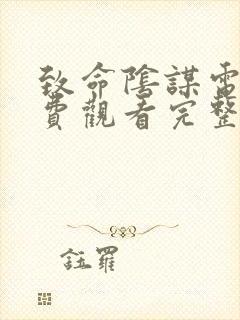 致命陰謀電
費觀看完整
鈺羅